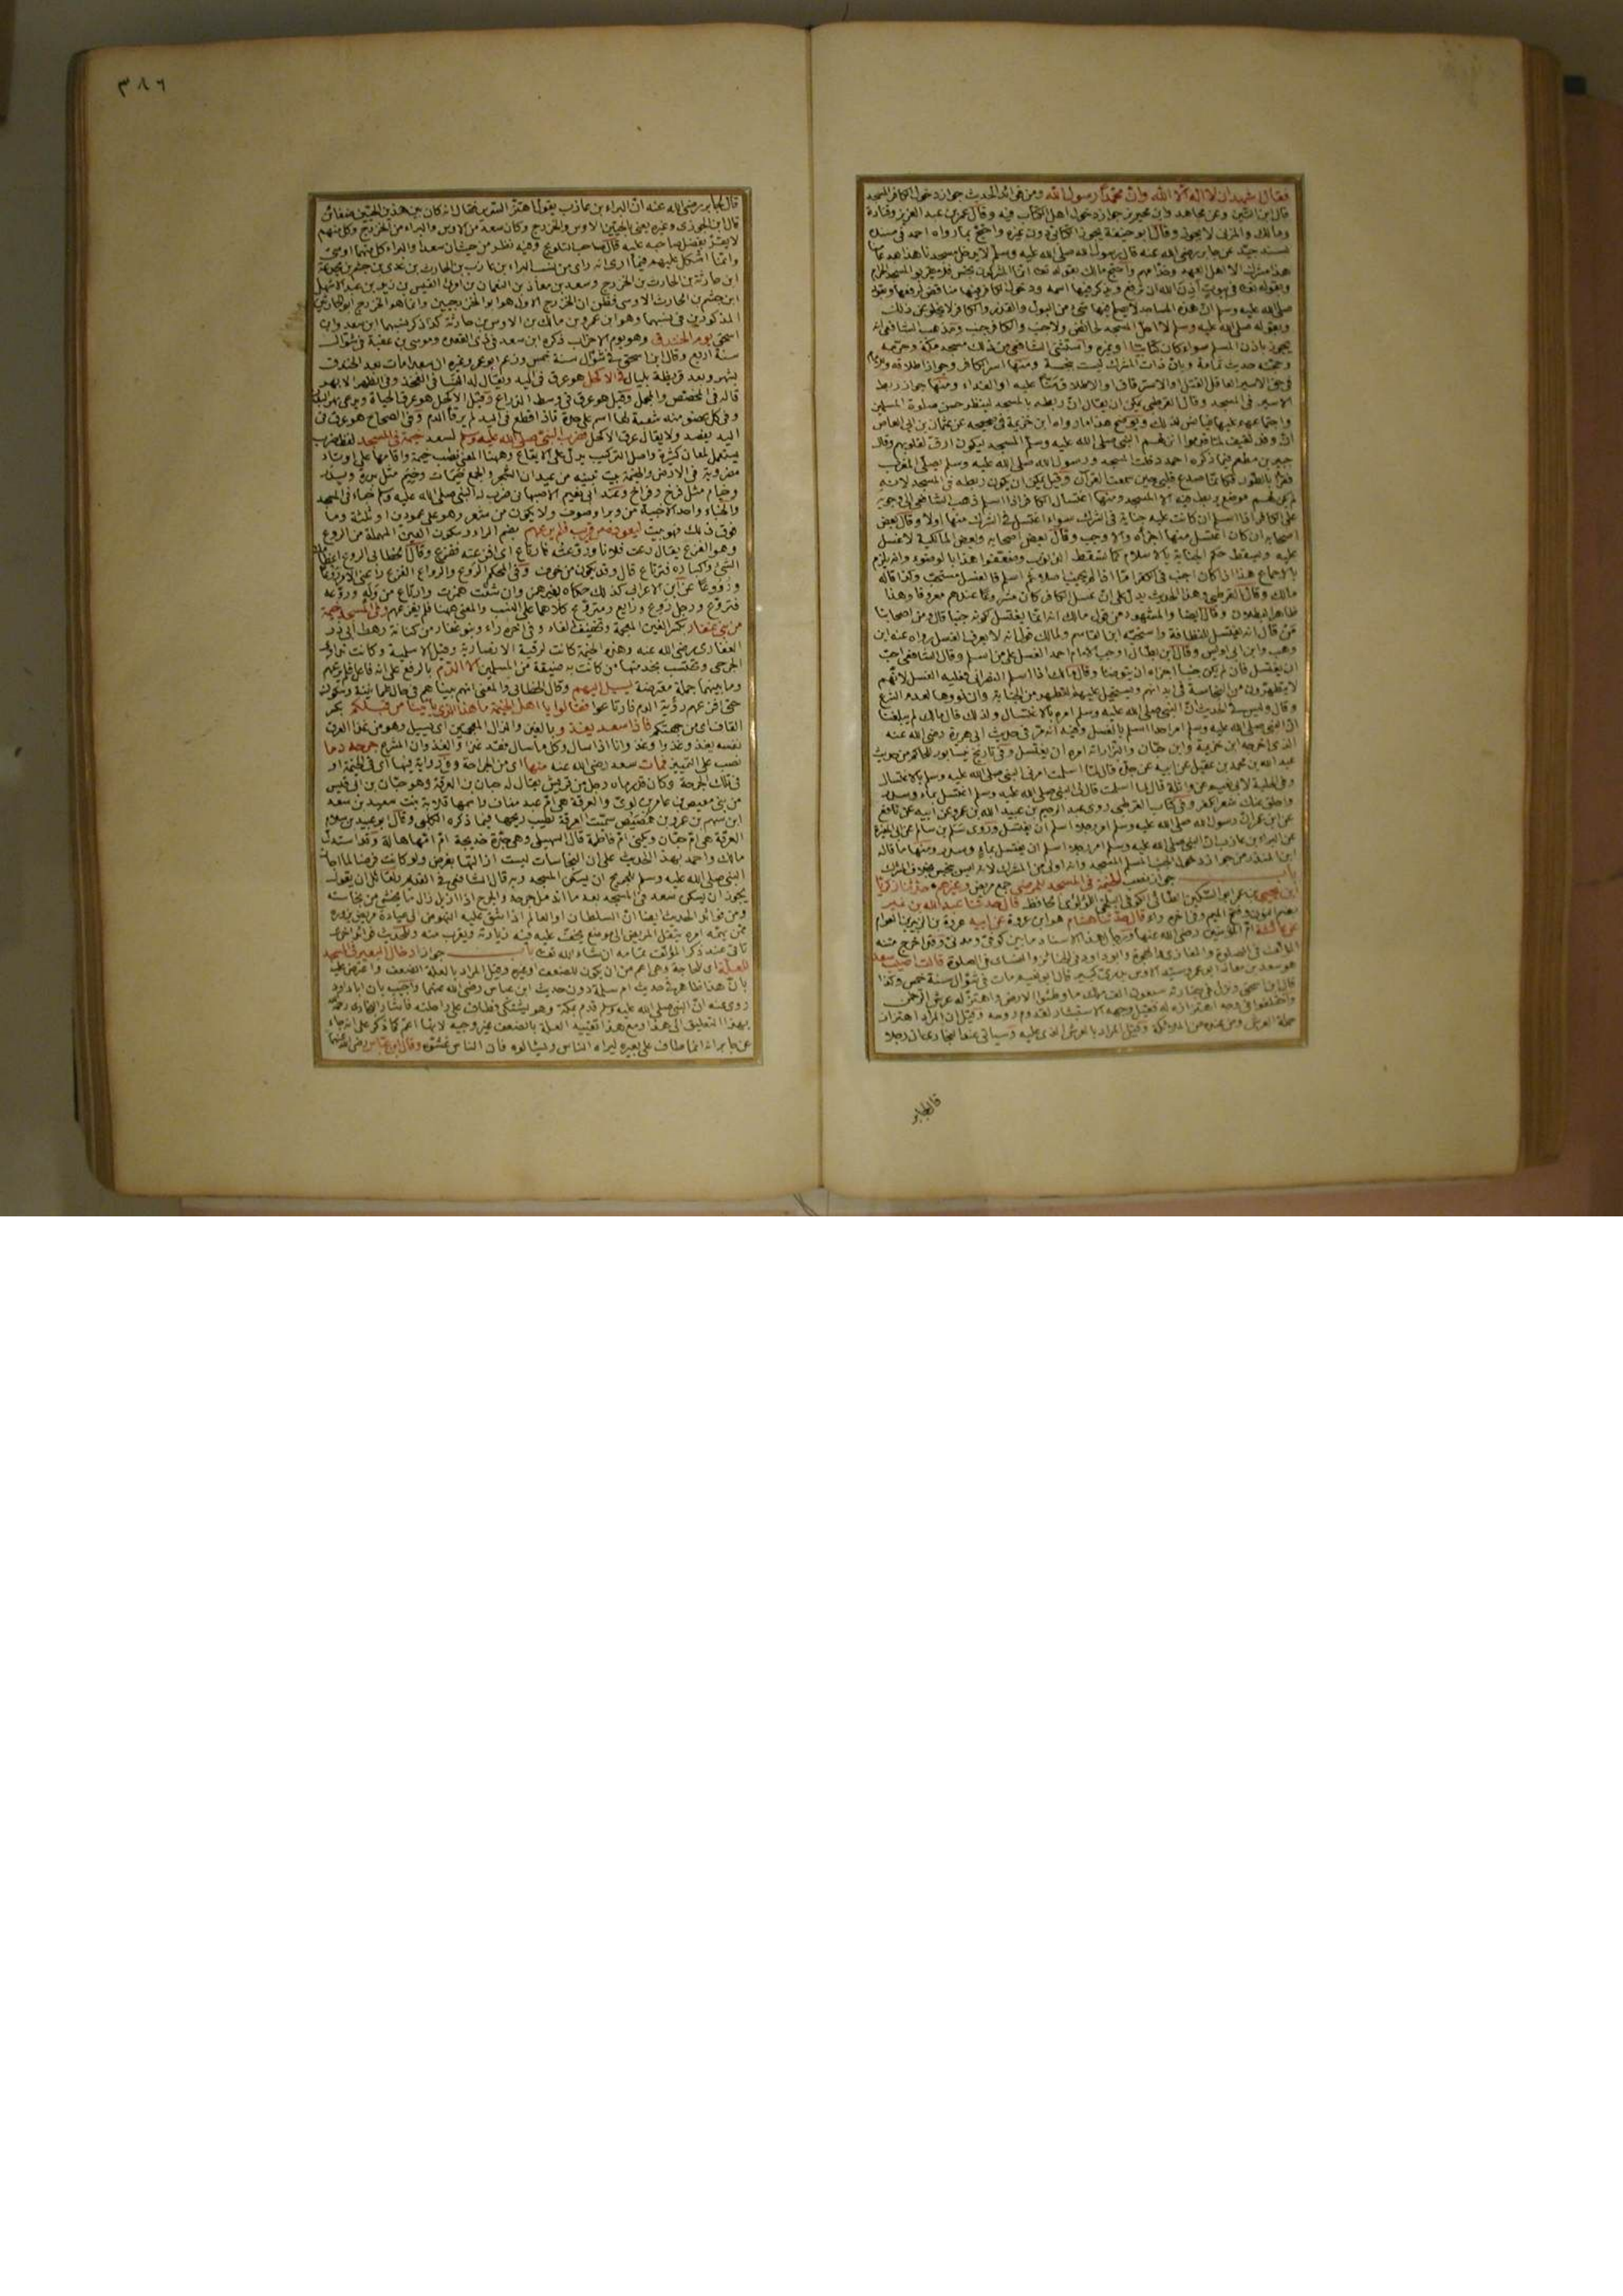 فقال اشهد ان لا اله الا الله وان محمدا رسول الله ومن فوائد الحديث جواز دخول الكافر المسجد
قال ابن التين وعن مجاهد وابن محيريز جواز دخول اهل الكتاب فيه وقال عمر بن عبد العزيز وقتادة
ومالك والمزني لا يجوز وقال ابو حنيفة يجوز للكتابي دون غيره واحتج بما رواه احمد في مسنده
بسند جيد عن جابر رضي الله عنه قال رسول الله صلى الله عليه وسلم لا يدخل مسجدنا هذا بعد عامنا
هذا مشرك الا اهل العهد وخدامهم واحتج مالك بقوله تعالى انما المشركون نجس فلا يقربوا المسجد الحرام
وبقوله تعالى في بيوت اذن الله ان ترفع ويذكر فيها اسمه ودخول الكافر فيها مناقض لرفعها وبقوله
صلى الله عليه وسلم ان هذه المساجد لا يصلح فيها شئ من البول والقذر والكافر لا يخلو عن ذلك
وبقوله صلى الله عليه وسلم لا احل المسجد لحائض ولا جنب والكافر جنب ومذهب الشافعي انه
يجوز باذن المسلم سواء كان كتابيا او غيره واستثنى الشافعي من ذلك مسجد مكة وحرمه
وحجته حديث ثمامة وبان ذات المشرك ليست بنجسة ومنها اسر الكافر وجواز اطلاقه
في حق الاسير العاقل القتل او الاسترقاق او الاطلاق منا عليه او الفداء ومنها جواز ربط
الاسير في المسجد وقال القرطبي يمكن ان يقال ان ربطه بالمسجد لينظر حسن صلوة المسلمين
واجتماعهم عليها فيأنس لذلك ويوضح هذا ما رواه ابن خزيمة في صحيحه عن عثمان بن ابي العاص
ان وفد ثقيف لما قدموا انزلهم النبي صلى الله عليه وسلم المسجد ليكون ارق لقلوبهم وقال
جبير بن مطعم فيما ذكره احمد دخلت المسجد ورسول الله صلى الله عليه وسلم يصلي المغرب
فقرأ بالطور فكأنما صدع قلبي حين سمعت القرآن وقيل يمكن ان يكون ربطه في المسجد لانه
لم يكن لهم موضع يربط فيه الا المسجد ومنها اغتسال الكافر اذا اسلم ذهب الشافعي الى وجوبه
على الكافر اذا اسلم ان كانت عليه جنابة في الشرك سواء اغتسل في الشرك منها اولا وقال بعض
اصحابه ان كان اغتسل منها اجزأه والا وجب وقال بعض اصحابه وبعض المالكية لا غسل
عليه ويسقط حكم الجنابة بالاسلام كما تسقط الذنوب وضعفوا هذا بالوضوء وانه يلزم
بالاجماع هذا اذا كان اجنب في الكفر اما اذا لم يجنب اصلا ثم اسلم فالغسل مستحب وكذا قاله
مالك وقال القرطبي وهذا الحديث يدل على ان غسل الكافر كان مشروعا عندهم معروفا وهذا
ظاهر البطلان وقال ايضا والمشهور من قول مالك انه انما يغتسل لكونه جنبا قال ومن اصحابنا
من قال انه يغتسل للنظافة واستحبه ابن القاسم ولمالك قول انه لا يعرف الغسل رواه عنه ابن
وهب وابن ابي اويس وقال ابن بطال اوجب الامام احمد الغسل على من اسلم وقال الشافعي احب
ان يغتسل فان لم يكن جنبا اجزاه ان يتوضأ وقال مالك اذا اسلم النصراني فعليه الغسل لانهم
لا يتطهرون من النجاسة في ابدانهم ويستحيل عليهم التطهر من الجنابة وان نووها لعدم الشرع
وقال وليس في الحديث ان النبي صلى الله عليه وسلم امره بالاغتسال ولذلك قال مالك لم يبلغنا
ان النبي صلى الله عليه وسلم امر احدا اسلم بالغسل وفيه انه مر في حديث ابي هريرة رضي الله عنه
الذي اخرجه ابن خزيمة وابن حبان والبزار انه امره ان يغتسل وفي تاريخ نيسابور للحاكم من حديث
عبد الله بن محمد بن عقيل عن ابيه عن جده قال لما اسلمت امرني النبي صلى الله عليه وسلم بالاغتسال
وفي الحلية لابي نعيم عن واثلة قال لما اسلمت قال لي النبي صلى الله عليه وسلم اغتسل بماء وسدر
واحلق عنك شعر الكفر وفي كتاب القرطبي روى عبد الرحيم بن عبيد الله بن عمر عن ابيه عن نافع
عن ابن عمر ان رسول الله صلى الله عليه وسلم امر رجلا اسلم ان يغتسل وروى مسلم بن سالم عن ابي المغيرة
عن البراء بن عازب ان النبي صلى الله عليه وسلم امر رجلا اسلم ان يغتسل بماء وسدر ومنها ما قاله
ابن المنذر من جواز دخول الجنب المسلم المسجد وانه اولى من المشرك لانه ليس بنجس بخلاف المشرك
باب جواز نصب الخيمة في المسجد للمرضى جمع مريض وغيرهم حدثنا زكريا
ابن يحيى بن عمر ابو السكين الطائي الكوفي اللؤلؤي الحافظ قال حدثنا عبد الله بن نمير
بضم النون وفتح الميم وفي اخره راء قال حدثنا هشام هو ابن عروة عن ابيه عروة بن الزبير بن العوام
عن عائشة ام المؤمنين رضي الله عنها ورجال هذا الاسناد ما بين كوفي ومدني وقد اخرج متنه
المؤلف في الصلوة والمغازي والهجرة وابو داود في الجنائز والنسائي في الصلوة قالت اصيب سعد
هو سعد بن معاذ ابو عمرو سيد الاوس بدري كبير قال ابو نعيم مات في شوال سنة خمس وكذا
قال ابن اسحق ونزل في جنازته سبعون الف ملك ما وطئوا الارض واهتز له عرش الرحمن
واختلفوا في وجه اهتزازه له فقيل وجهه الاستبشار لقدوم روحه وقيل ان المراد اهتزاز
حملة العرش ومن عنده من الملائكة وقيل المراد بالعرش الذي عليه وسيأتي عند البخاري ان رجلا
قال لجابر
٣٨٦
قال لجابر رضي الله عنه ان البراء بن عازب يقول اهتز السرير فقال انه كان بين هذين الحيين ضغائن
قال ابن الجوزي وغيره يعني بالحيين الاوس والخزرج وكان سعد من الاوس والبراء من الخزرج وكل منهم
لا يقر بفضل صاحبه عليه قال صاحب التلويح وفيه نظر من حيث ان سعدا والبراء كل منهما اوسي
وانما اشكل عليهم فيما ارى انه رأى من نسب البراء بن عازب بن الحارث بن عدي بن جشم بن مجدعة
ابن حارثة بن الحارث بن الخزرج وسعد بن معاذ بن النعمان بن امرئ القيس بن زيد بن عبد الاشهل
ابن جشم بن الحارث الاوسي فظن ان الخزرج الاول هو ابو الخزرجيين وانما هو الخزرج ابو الحارثيين
المذكورين في نسبهما وهو ابن عمرو بن مالك بن الاوس بن حارثة كذا ذكر نسبهما ابن سعد وابن
اسحق يوم الخندق وهو يوم الاحزاب ذكره ابن سعد في ذي القعدة وموسى بن عقبة في شوال
سنة اربع وقال ابن اسحق في شوال سنة خمس وزعم ابو عمر وغيره ان سعدا مات بعد الخندق
بشهر وبعد قريظة بليال في الاكحل هو عرق في اليد ويقال له النسا في الفخذ وفي الظهر الابهر
قاله في المخصص والمجمل وقيل هو عرق في وسط الذراع وقيل الاكحل هو عرق الحياة ويدعى نهر البدن
وفي كل عضو منه شعبة لها اسم على حدة فاذا قطع في اليد لم يرقأ الدم وفي الصحاح هو عرق في
اليد يفصد ولا يقال عرق الاكحل فضرب النبي صلى الله عليه وسلم لسعد خيمة في المسجد لفظ ضرب
يستعمل لمعان كثيرة واصل التركيب يدل على الايقاع وههنا المعنى نصب خيمة واقامها على اوتاد
مضروبة في الارض والخيمة بيت تبنيه من عيدان الشجر والجمع خيمات وخيم مثل بدرة وبدر
وخيام مثل فرخ وفراخ وعند ابي نعيم الاصبهاني ضرب له النبي صلى الله عليه وسلم خباء في المسجد
والخباء واحد الاخبية من وبر او صوف ولا يكون من شعر وهو على عمودين او ثلثة وما
فوق ذلك فهو بيت ليعوده من قريب فلم يرعهم بضم الراء وسكون العين المهملة من الروع
وهو الفزع يقال رعت فلانا وروعته فارتاع اي افزعته ففزع وقال الخطابي الروع اعظامك
الشئ واكباره فترتاع قال وقد يكون من خوف وفي المحكم الروع والرواع الفزع راعني الامر روعا
ورووعا عن ابن الاعرابي كذلك حكاه بغير همز وان شئت همزت وارتاع منه وله وروعه
فتروع ورجل روع ورايع ومتروع كلاهما على النسب والمعنى ههنا فلم يفزعهم وفي المسجد خيمة
من بني غفار بكسر الغين المعجمة وتخفيف الفاء وفي اخره راء وبنو غفار من كنانة رهط ابي ذر
الغفاري رضي الله عنه وهذه الخيمة كانت لرقية الانصارية وقيل الاسلمية وكانت تداوي
الجرحى وتحتسب بخدمتها من كانت به ضيعة من المسلمين الا الدم بالرفع على انه فاعل فلم يرعهم
وما بينهما جملة معترضة يسيل اليهم وقال الخطابي والمعنى انهم بينا هم في حال طمانينة وسكون
حتى افزعهم رؤية الدم فارتاعوا فقالوا يا اهل الخيمة ما هذا الذي يأتينا من قبلكم بكسر
القاف اي من جهتكم فاذا سعد يغذو بالغين والذال المعجمتين اي يسيل وهو من غذا العرق
نفسه يغذو غذوا وغذوانا اذا سال وكل ما سال فقد غذا والغذوان المسرع جرحه دما
نصب على التمييز فمات سعد رضي الله عنه منها اي من الجراحة وفي رواية فيها اي في الخيمة او
في تلك الجرحة وكان قد رماه رجل من قريش يقال له حبان بن العرقة وهو حبان بن ابي قيس
من بني معيص بن عامر بن لوي والعرقة هي ام عبد مناف واسمها قلابة بنت سعيد بن سعد
ابن سهم بن عمرو بن هصيص سميت العرقة لطيب ريحها فيما ذكره الكلبي وقال ابو عبيد بن سلام
العرقة هي ام حبان وتكنى ام فاطمة قال السهيلي وهي جدة خديجة ام امها هالة وقد استدل
مالك واحمد بهذا الحديث على ان النجاسات ليست ازالتها بفرض ولو كانت فرضا لما اجاز
النبي صلى الله عليه وسلم للجريح ان يسكن المسجد وبه قال الشافعي في القديم ولقائل ان يقول
يجوز ان يسكن سعد في المسجد بعد ما اندمل جرحه والجرح اذا اندمل زال ما يخشى من نجاسته
ومن فوائد الحديث ايضا ان السلطان او العالم اذا شق عليه النهوض الى عيادة مريض يزوره
ممن يهمه امره ينقل المريض الى موضع يخف عليه فيه زيارته ويقرب منه وللحديث فوائد اخرى
تأتي عند ذكر المؤلف تمامه ان شاء الله تعالى باب جواز ادخال البعير في المسجد
للعلة اي للحاجة وهي اعم من ان يكون للضعف او غيره وقيل المراد بالعلة الضعف واعترض عليه
بان هذا ظاهر في حديث ام سلمة دون حديث ابن عباس رضي الله عنهما واجيب بان ابا داود
روى عنه ان النبي صلى الله عليه وسلم قدم مكة وهو يشتكي فطاف على راحلته فاشار البخاري رحمه الله
بهذا التعليق الى هذا ومع هذا تقييد العلة بالضعف غير وجيه لانها اعم كما ذكر على انه جاء
عن جابر انه انما طاف على بعيره ليراه الناس وليسألوه فان الناس غشوه وقال ابن عباس رضي الله عنهما